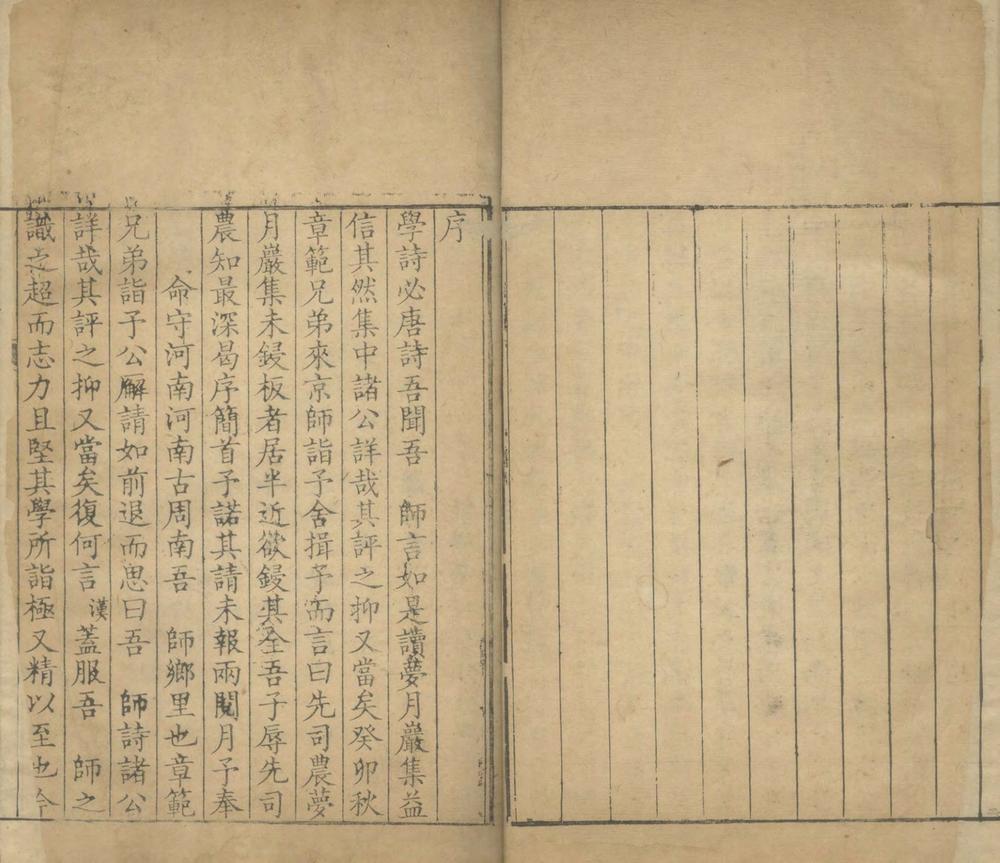 序
學詩必唐詩吾聞吾　師言如是讀夢月巖集益
信其然集中諸公詳哉其評之抑又當矣癸卯秋
章範兄弟來京師詣予舍揖予而言曰先司農夢
月巖集未鋟板者居半近欲鋟其全吾子辱先司
農知最深曷序簡首予諾其請未報兩閱月予奉
命守河南河南古周南吾　師鄉里也章範
兄弟詣予公廨請如前退而思曰吾　師詩諸公
詳哉其評之抑又當矣復何言漢蓋服吾　師之
識之超而志力且堅其學所詣極又精以至也今